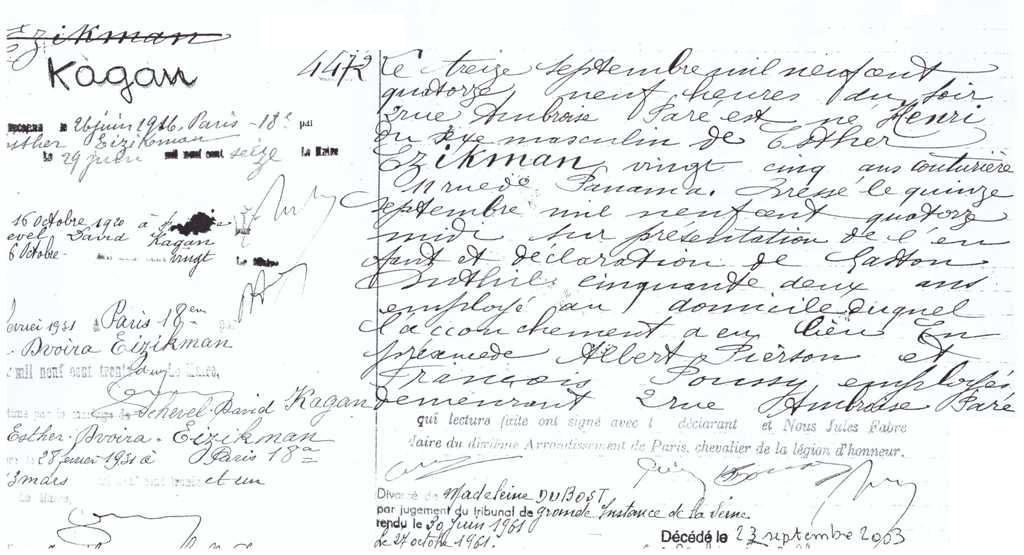 Ezikman
Kagan
4472
le 26 juin 1916. Paris - 18e par
Esther Eizikman
Le 29 juin mil neuf cent seize Le Maire
16 octobre 1920 à
David Kagan
Octobre - vingt Le Maire
1931 à Paris 18em par
Dvoira Eizikman
mil neuf cent trente Le Maire,
par le mariage de Schevel-David Kagan
Esther-Dvoira-Eizikman
28 février 1931 à Paris 18e
3 mars mil neuf cent trente et un
Le Maire,
Le treize septembre mil neuf cent
quatorze, neuf heures du soir
2 rue Ambroise Paré est né Henri
du sexe masculin de Esther
Ezikman vingt cinq ans couturière
11 rue de Panama. Dressé le quinze
septembre mil neuf cent quatorze
midi sur présentation de l'en
fant et déclaration de Gaston
cinquante deux ans
employé au domicile duquel
l'accouchement a eu lieu En
présence de Albert Pierson et
François Poussy, employés
demeurant 2 rue Ambroise Paré
qui lecture faite ont signé avec l déclarant et Nous Jules Fabre
Maire du dixième Arrondissement de Paris, chevalier de la légion d'honneur.
Divorcé de Madeleine DUBOST
par jugement du tribunal de grande Instance de la Seine
rendu le 30 juin 1961
Le 27 octobre 1961.
Décédé le 23 septembre 2003